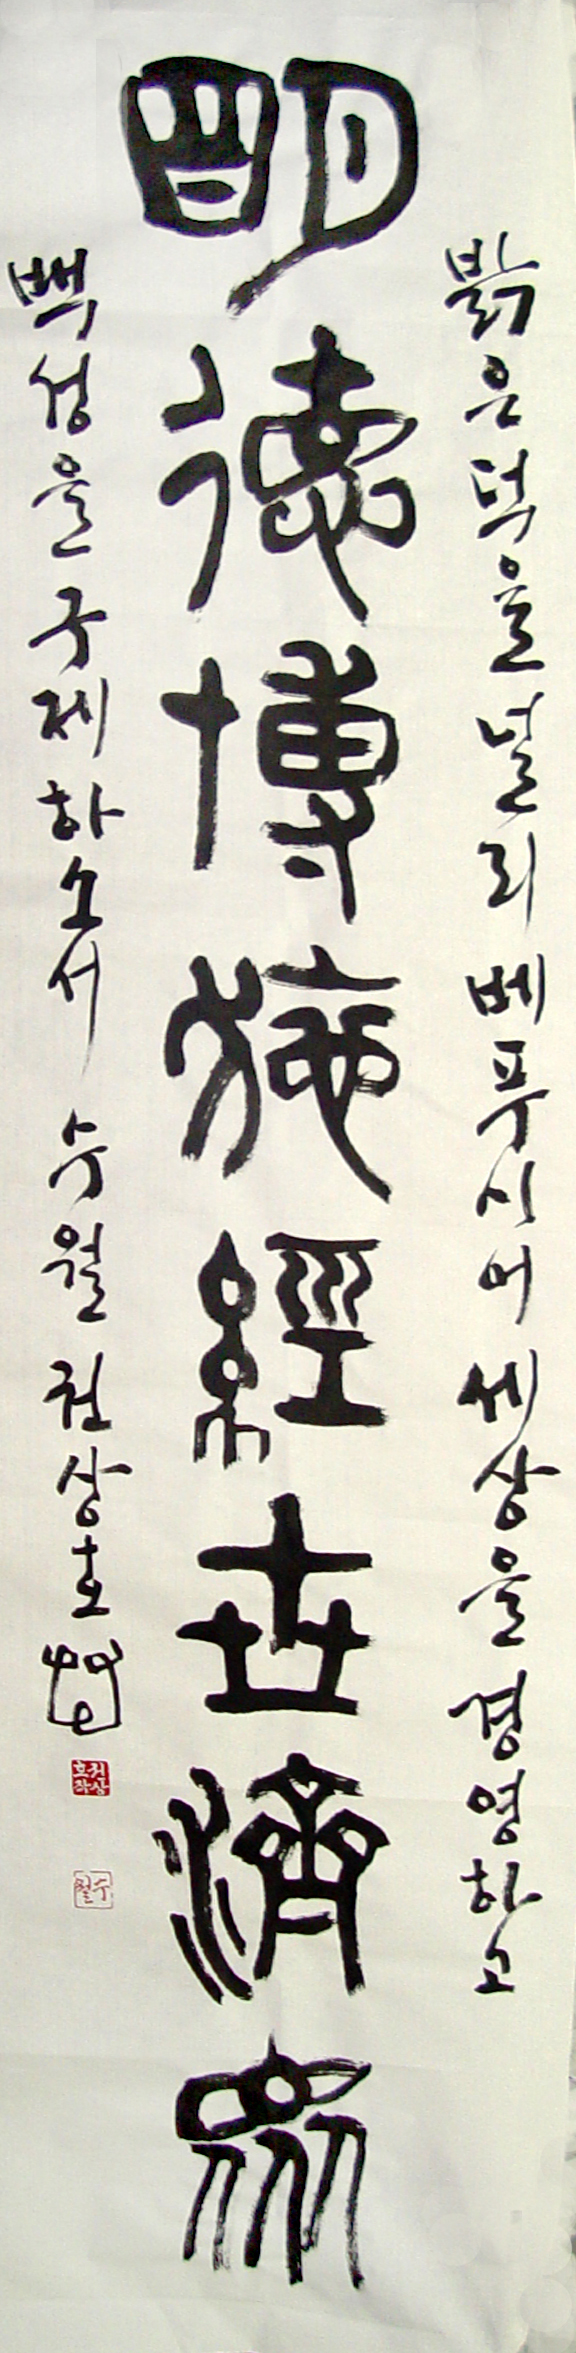 밝은 덕을 널리 베푸시어 세상을 경영하고
明德博施經世濟眾
백성을 구제하소서 수월 권상호
권상호작
수월